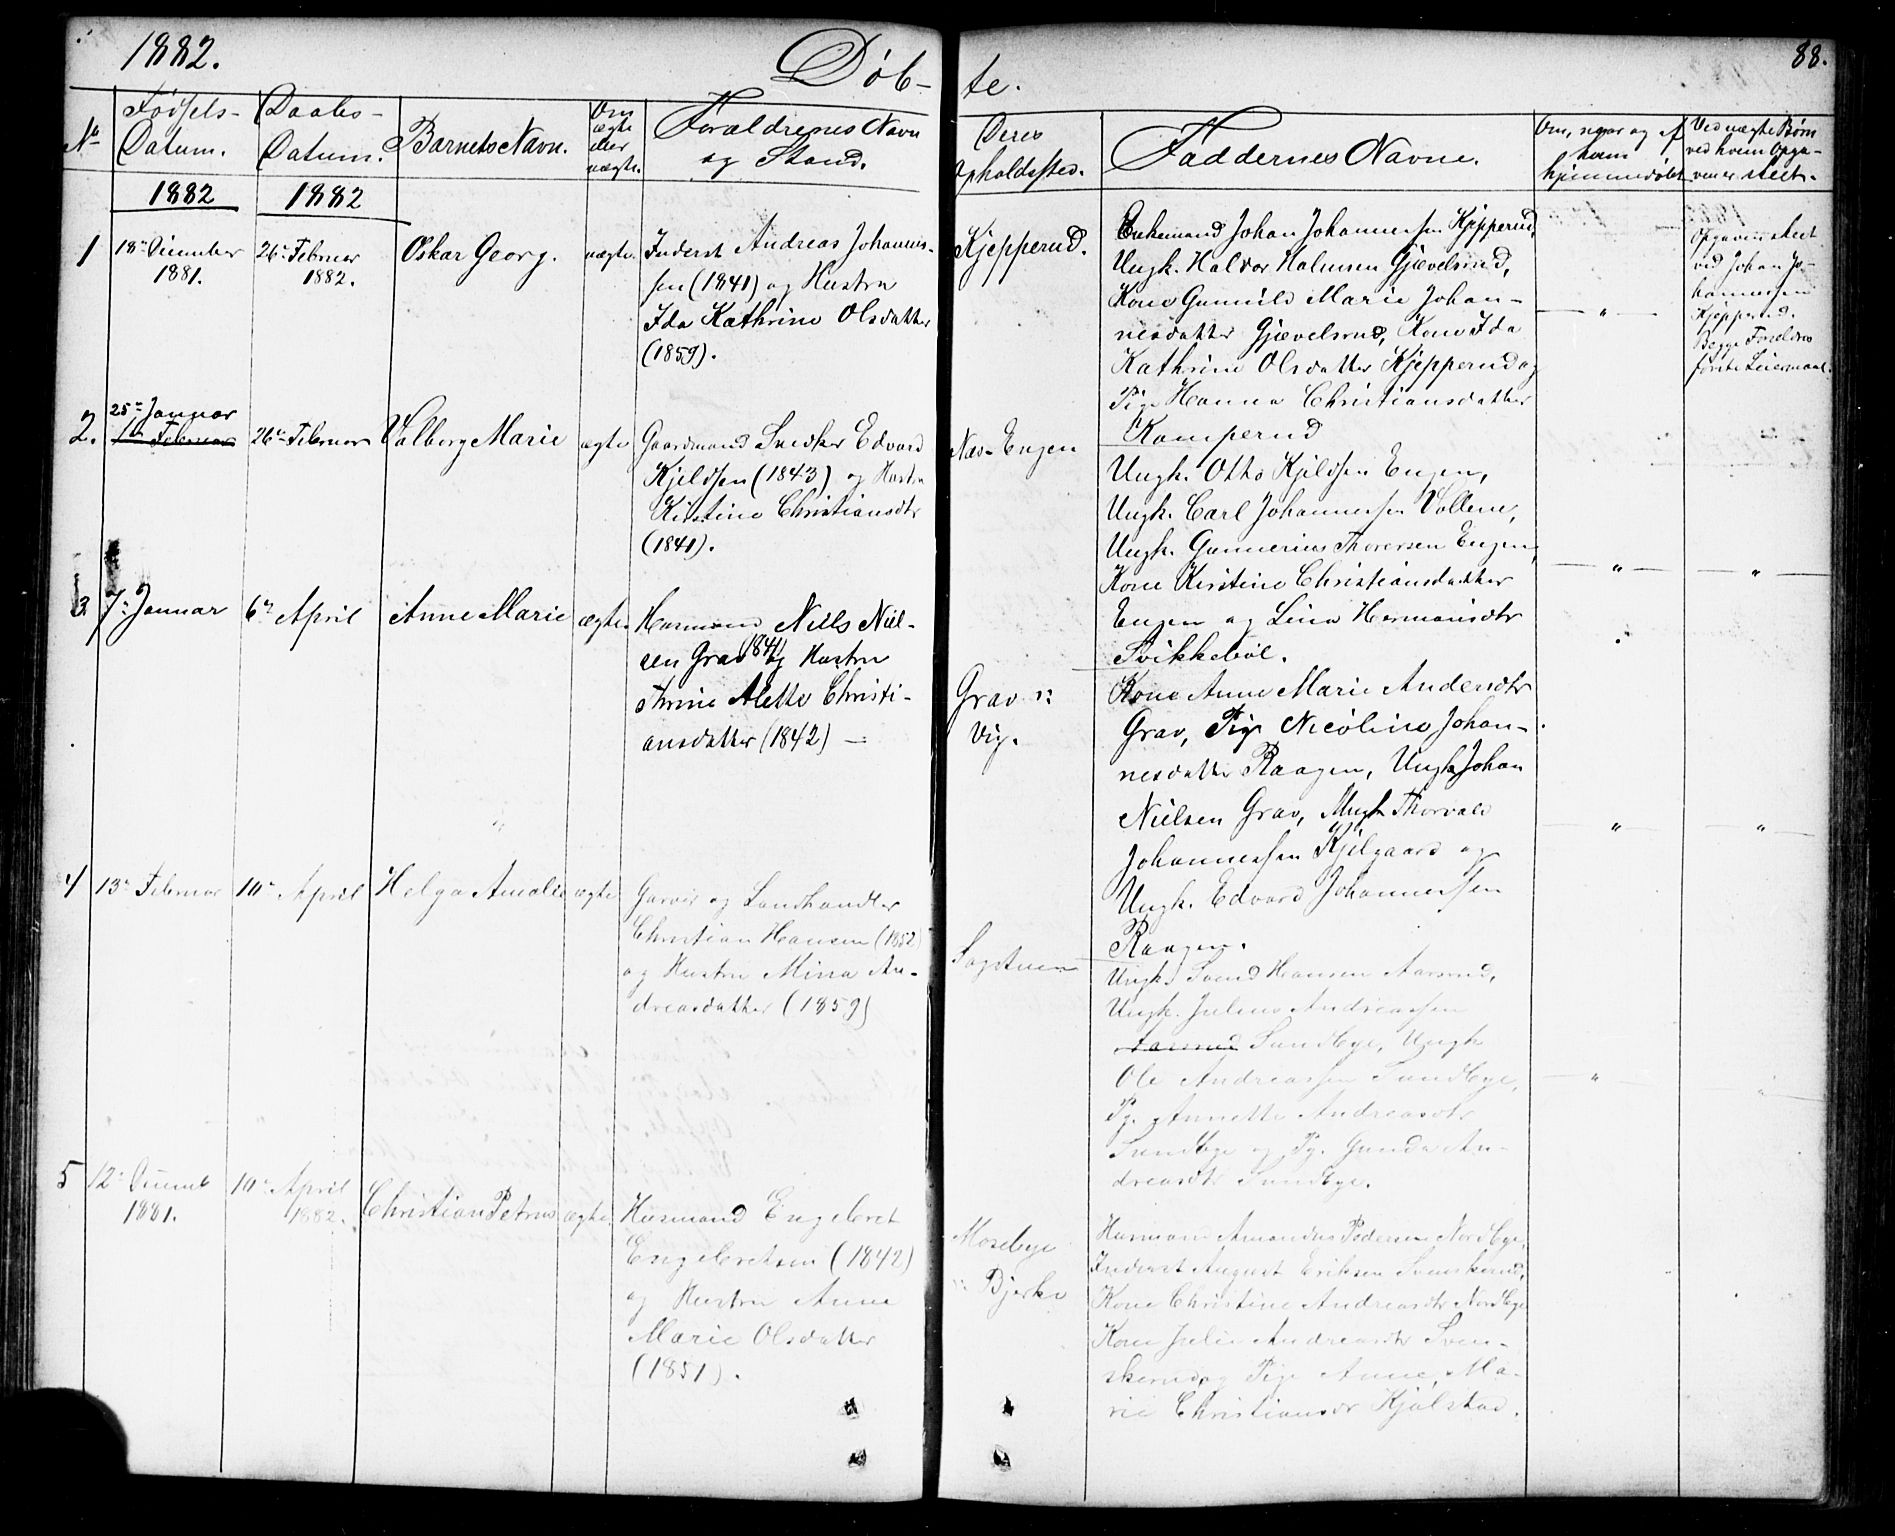 1882.
Døb-
te.
88.
No
Fødsels-
Datum.
Daabs-
Datum.
Barnets Navn.
Om
ægte
eller
uægte.
Forældrenes Navn
og Stand.
Deres
Opholdssted.
Faddernes Navne.
Om, naar og af
hvem
hjemmedøbt
Ved uægte Børn
ved hvem Opga-
ven er skeet.
1882
1882
1
18de December
1881.
26de Februar
1882.
Oskar Georg.
uægte.
Inderst Andreas Johannes-
sen (1841) og Hustru
Ida Kathrine Olsdatter
(1859).
Kjepperud.
Enkemand Johan Johannessen Kjepperud,
Ungk. Haldor Halvorsen Gjævelsrud,
Kone Gunnild Marie Johan-
nesdatter Gjævelsrud, Kone Ida
Kathrine Olsdatter Kjepperud og
Pige Hanna Christiansdatter
Kamperud
—"—
Opgaven skeet
ved Johan Jo-
hannessen
Kjepperud.
Begge Forældres
første Leiermaal.
2.
25de Januar
Februar
26de Februar
Valborg Marie
ægte
Gaardmand Snedker Edvard
Kjeldsen (1843) og Hustru
Kirstine Christiansdtr
(1841).
Næs-Engen
Ungk. Otto Kjeldsen Engen,
Ungk. Carl Johannessen Vollene,
Ungk. Gunnerius Thoresen Engen,
Kone Kirstine Christiansdatter
Engen og Lina Hermansdtr
Svikkebøl.
—"—
—"—
3
7de Januar
6te April
Anne Marie
ægte.
Husmand Nills Niel-
sen Grav 1841 og Hustru
Thrine Alette Christi-
ansdatter (1842) —
Grav u:
Vig.
Kone Anne Marie Andersdtr
Grav, Pige Nicoline Johan-
nesdatter Raagen, Ungk Johan
Nielsen Grav, Ungk Thorvald
Johannessen Kjelgaard og
Ungk. Edvard Johannessen
Raagen.
—"—
—"—
4
13de Februar
10de April
Helga Amalie
ægte
Garver og Landhandler
Christian Hansen (1852)
og Hustru Mina An-
dreasdatter (1859)
Sagstuen
Ungk. Svend Hansen Aarsrud,
Ungk. Julius Andreassen
Aarsrud Sundbye, Ungk
Ole Andreassen Sundbye,
Pg. Annette Andreasdtr
Sundbye og Pg. Gunda An-
dreasdtr Sundbye.
—"—
"
5
12te Decemb
1881.
10de April
1882.
Christian Petrus
ægte.
Husmand Engebret
Engebretsen (1842)
og Hustru Anne
Marie Olsdatter
(1851).
Mosebye
u: Bjerke
Husmand Amandus Pedersen Nordbye,
Inderst August Eriksen Svenskerud,
Kone Christine Andreasdtr Nordbye
Kone Julie Andreasdtr Sven-
skerud og Pige Anne Ma-
rie Christiansdr Kjølstad.